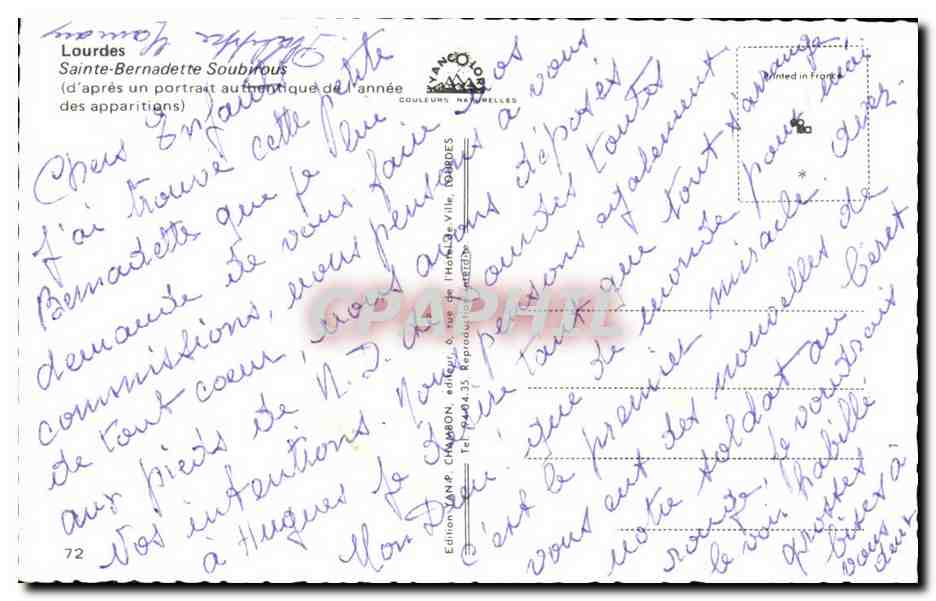 Lourdes
Sainte-Bernadette Soubirous
(d'après un portrait authentique de l'année
des apparitions)
YANCOLOR
COULEURS NATURELLES
Printed in France
*
Chers Enfants
J'ai trouvé cette petite
Bernadette que je lui
demande de vous faire vos
commissions, nous pensions à vous
de tout cœur, nous avons déposés
aux pieds de N. D. de Lourdes toutes
vos intentions. Nous pensons également
à Hugues je désire tant que tout s'arrange
Mon Dieu que de monde pour
c'est le premier miracle. avez
vous eut des nouvelles de
notre soldat au béret
rouge, je voudrais
le voir habillé
grosses
bises à
vous
deux
Philippe
Edition JEAN-P. CHAMBON, éditeur, 6, rue de l'Hôtel de Ville, LOURDES
Tel. 94-04.35 Reproduction interdite
CPAPHIL
72
1